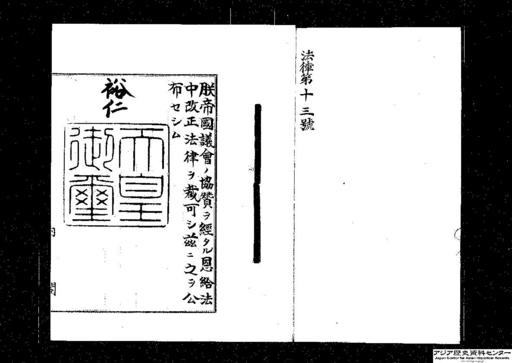 法律第十三號
朕帝國議會ノ協贊ヲ經タル恩給法
中改正法律ヲ裁可シ茲ニ之ヲ公
布セシム
裕仁
天皇
御璽
內
閣
アジア歴史資料センター
Japan Center for Asian Historical Records